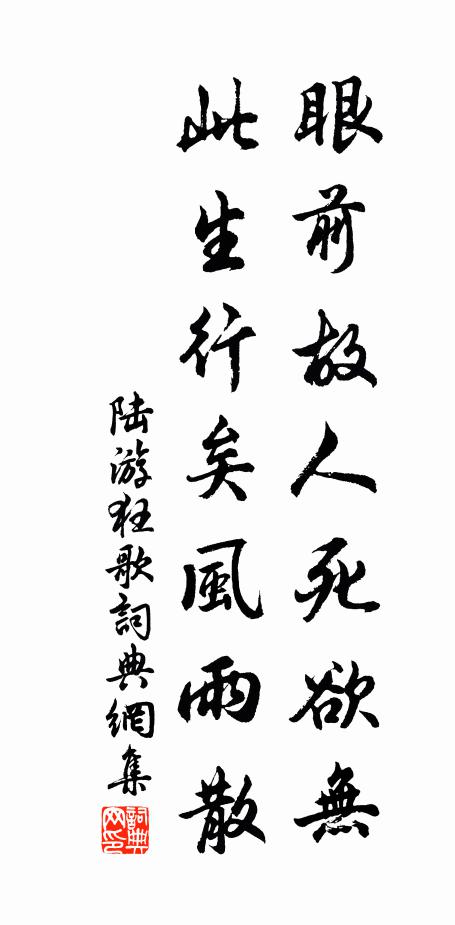 眼前故人死欲無
此生行矣風雨散
陸游狂歌詞典網集
詞典網印